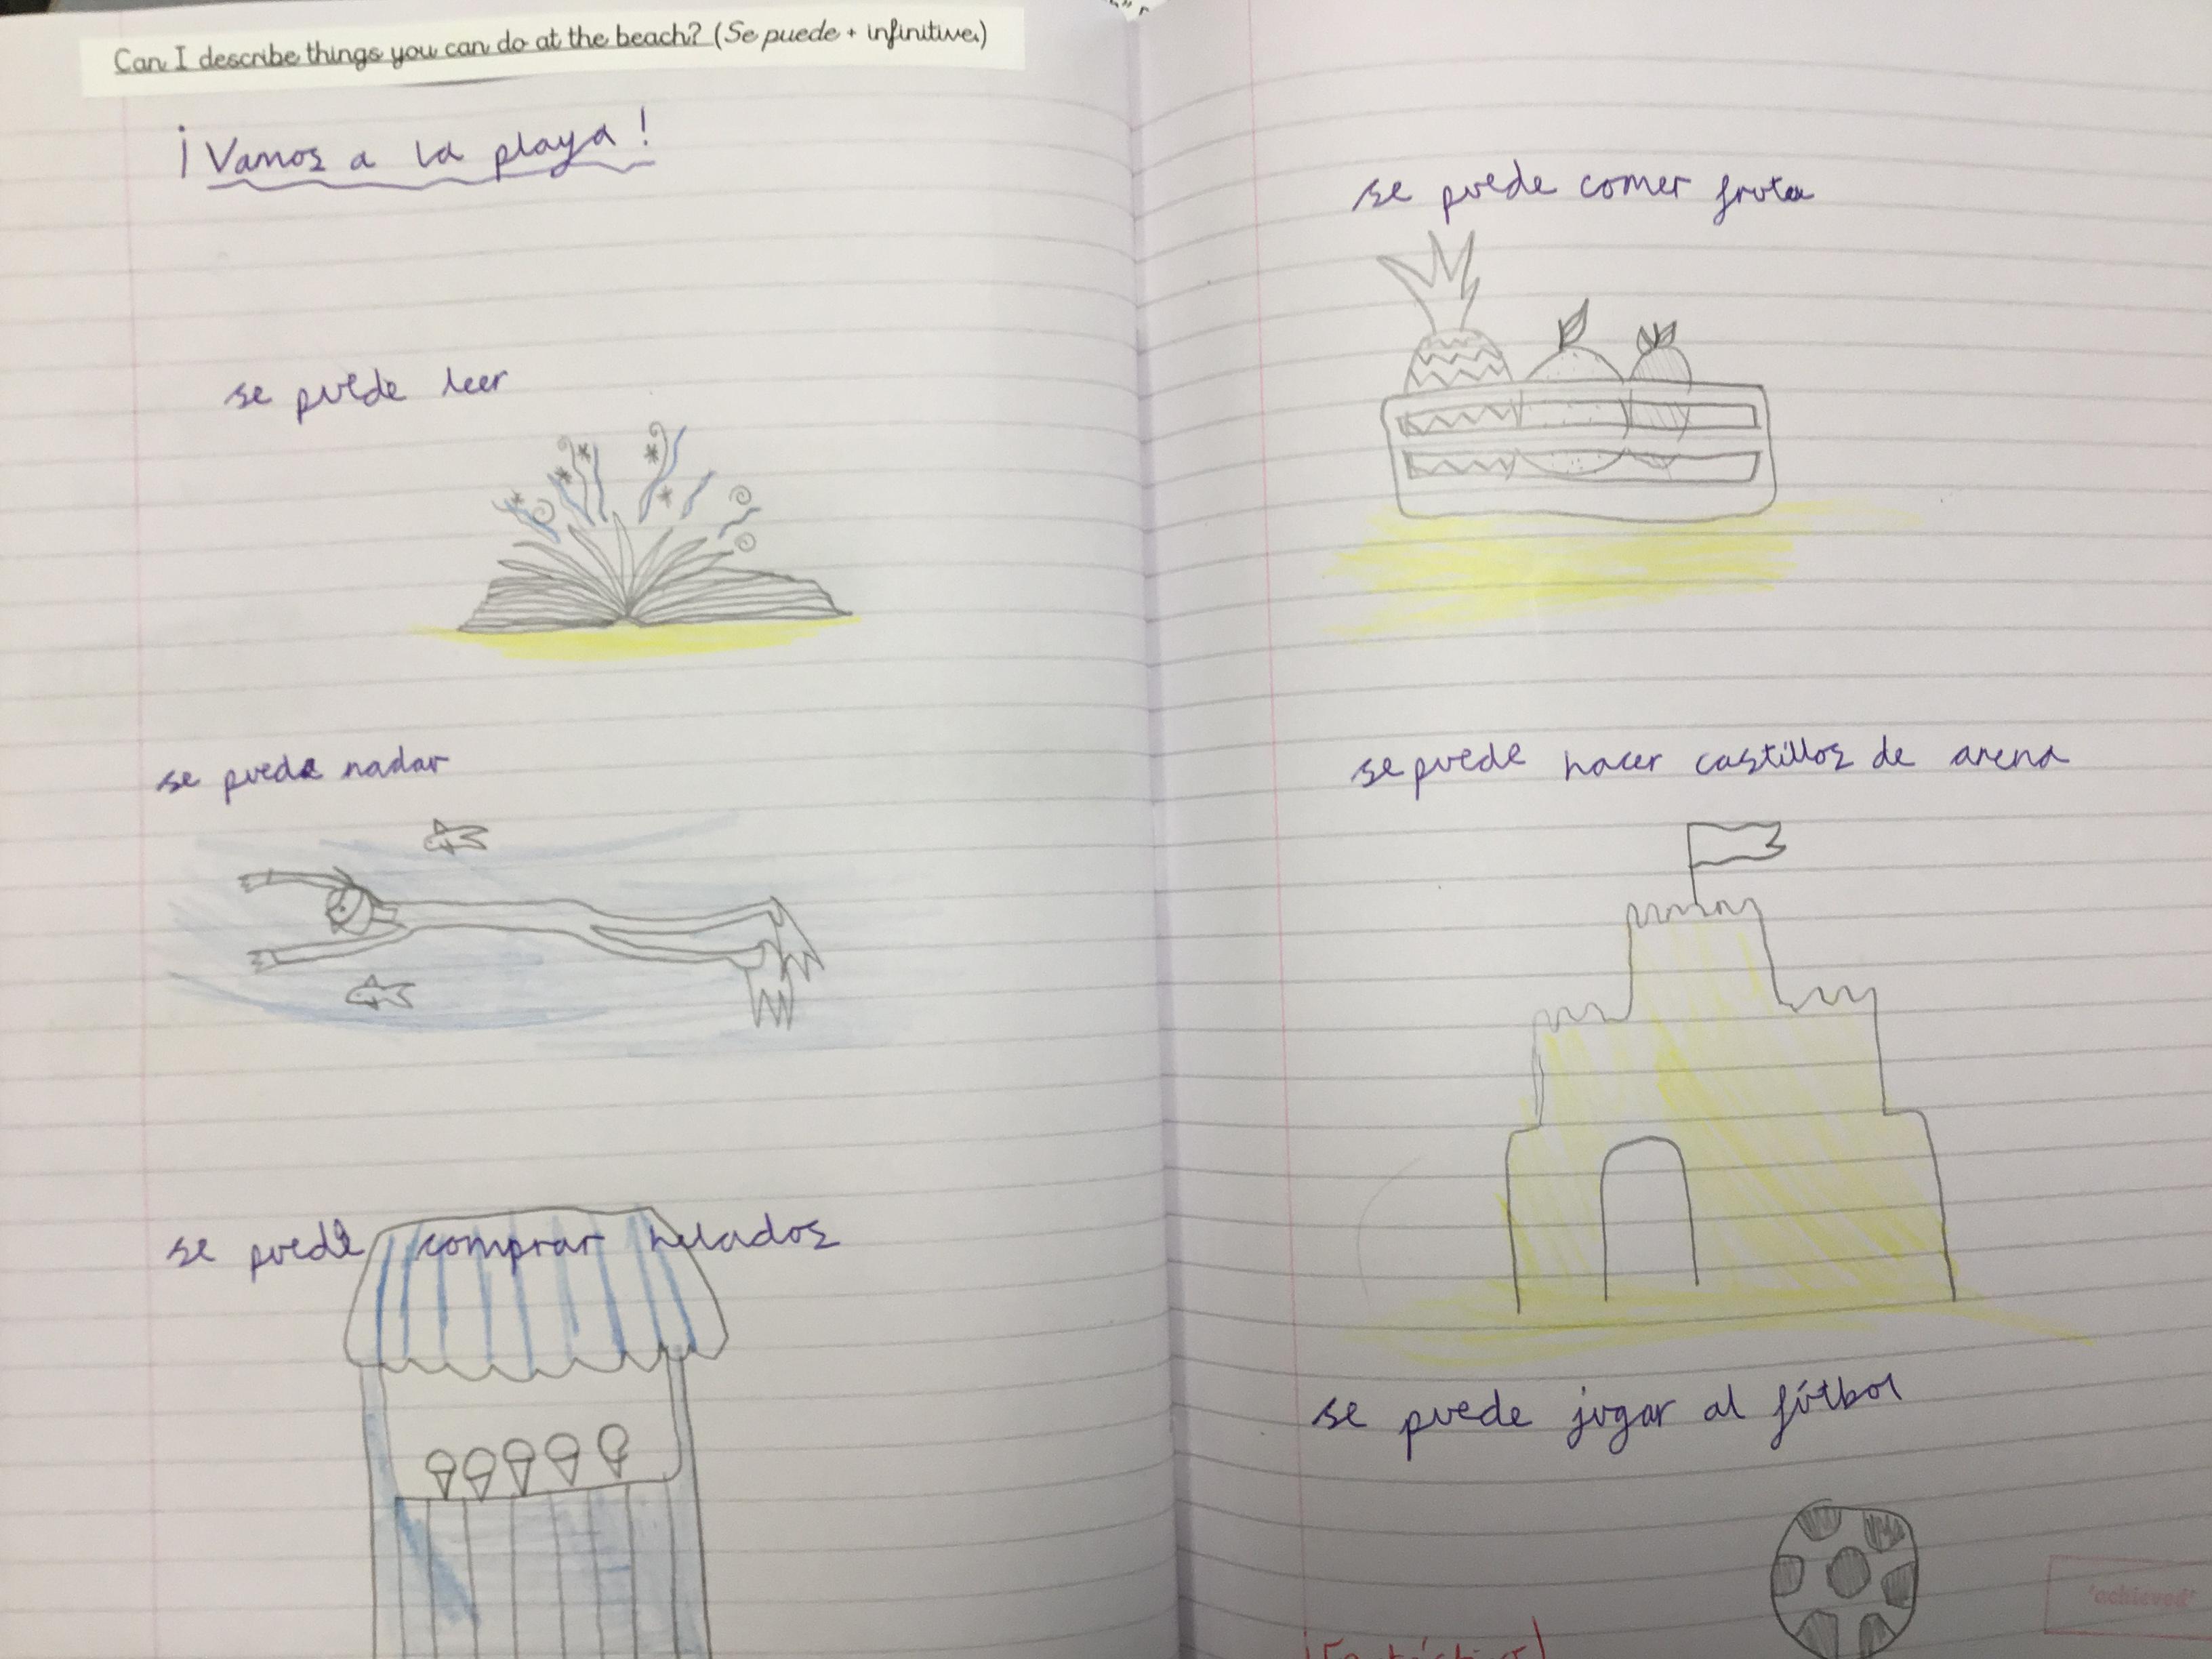 Can I describe things you can do at the beach? (Se puede + infinitive.)
¡Vamos a la playa!
se puede leer
se puede nadar
se puede comprar helados
se puede comer fruta
se puede hacer castillos de arena
se puede jugar al fútbol
'achieved'